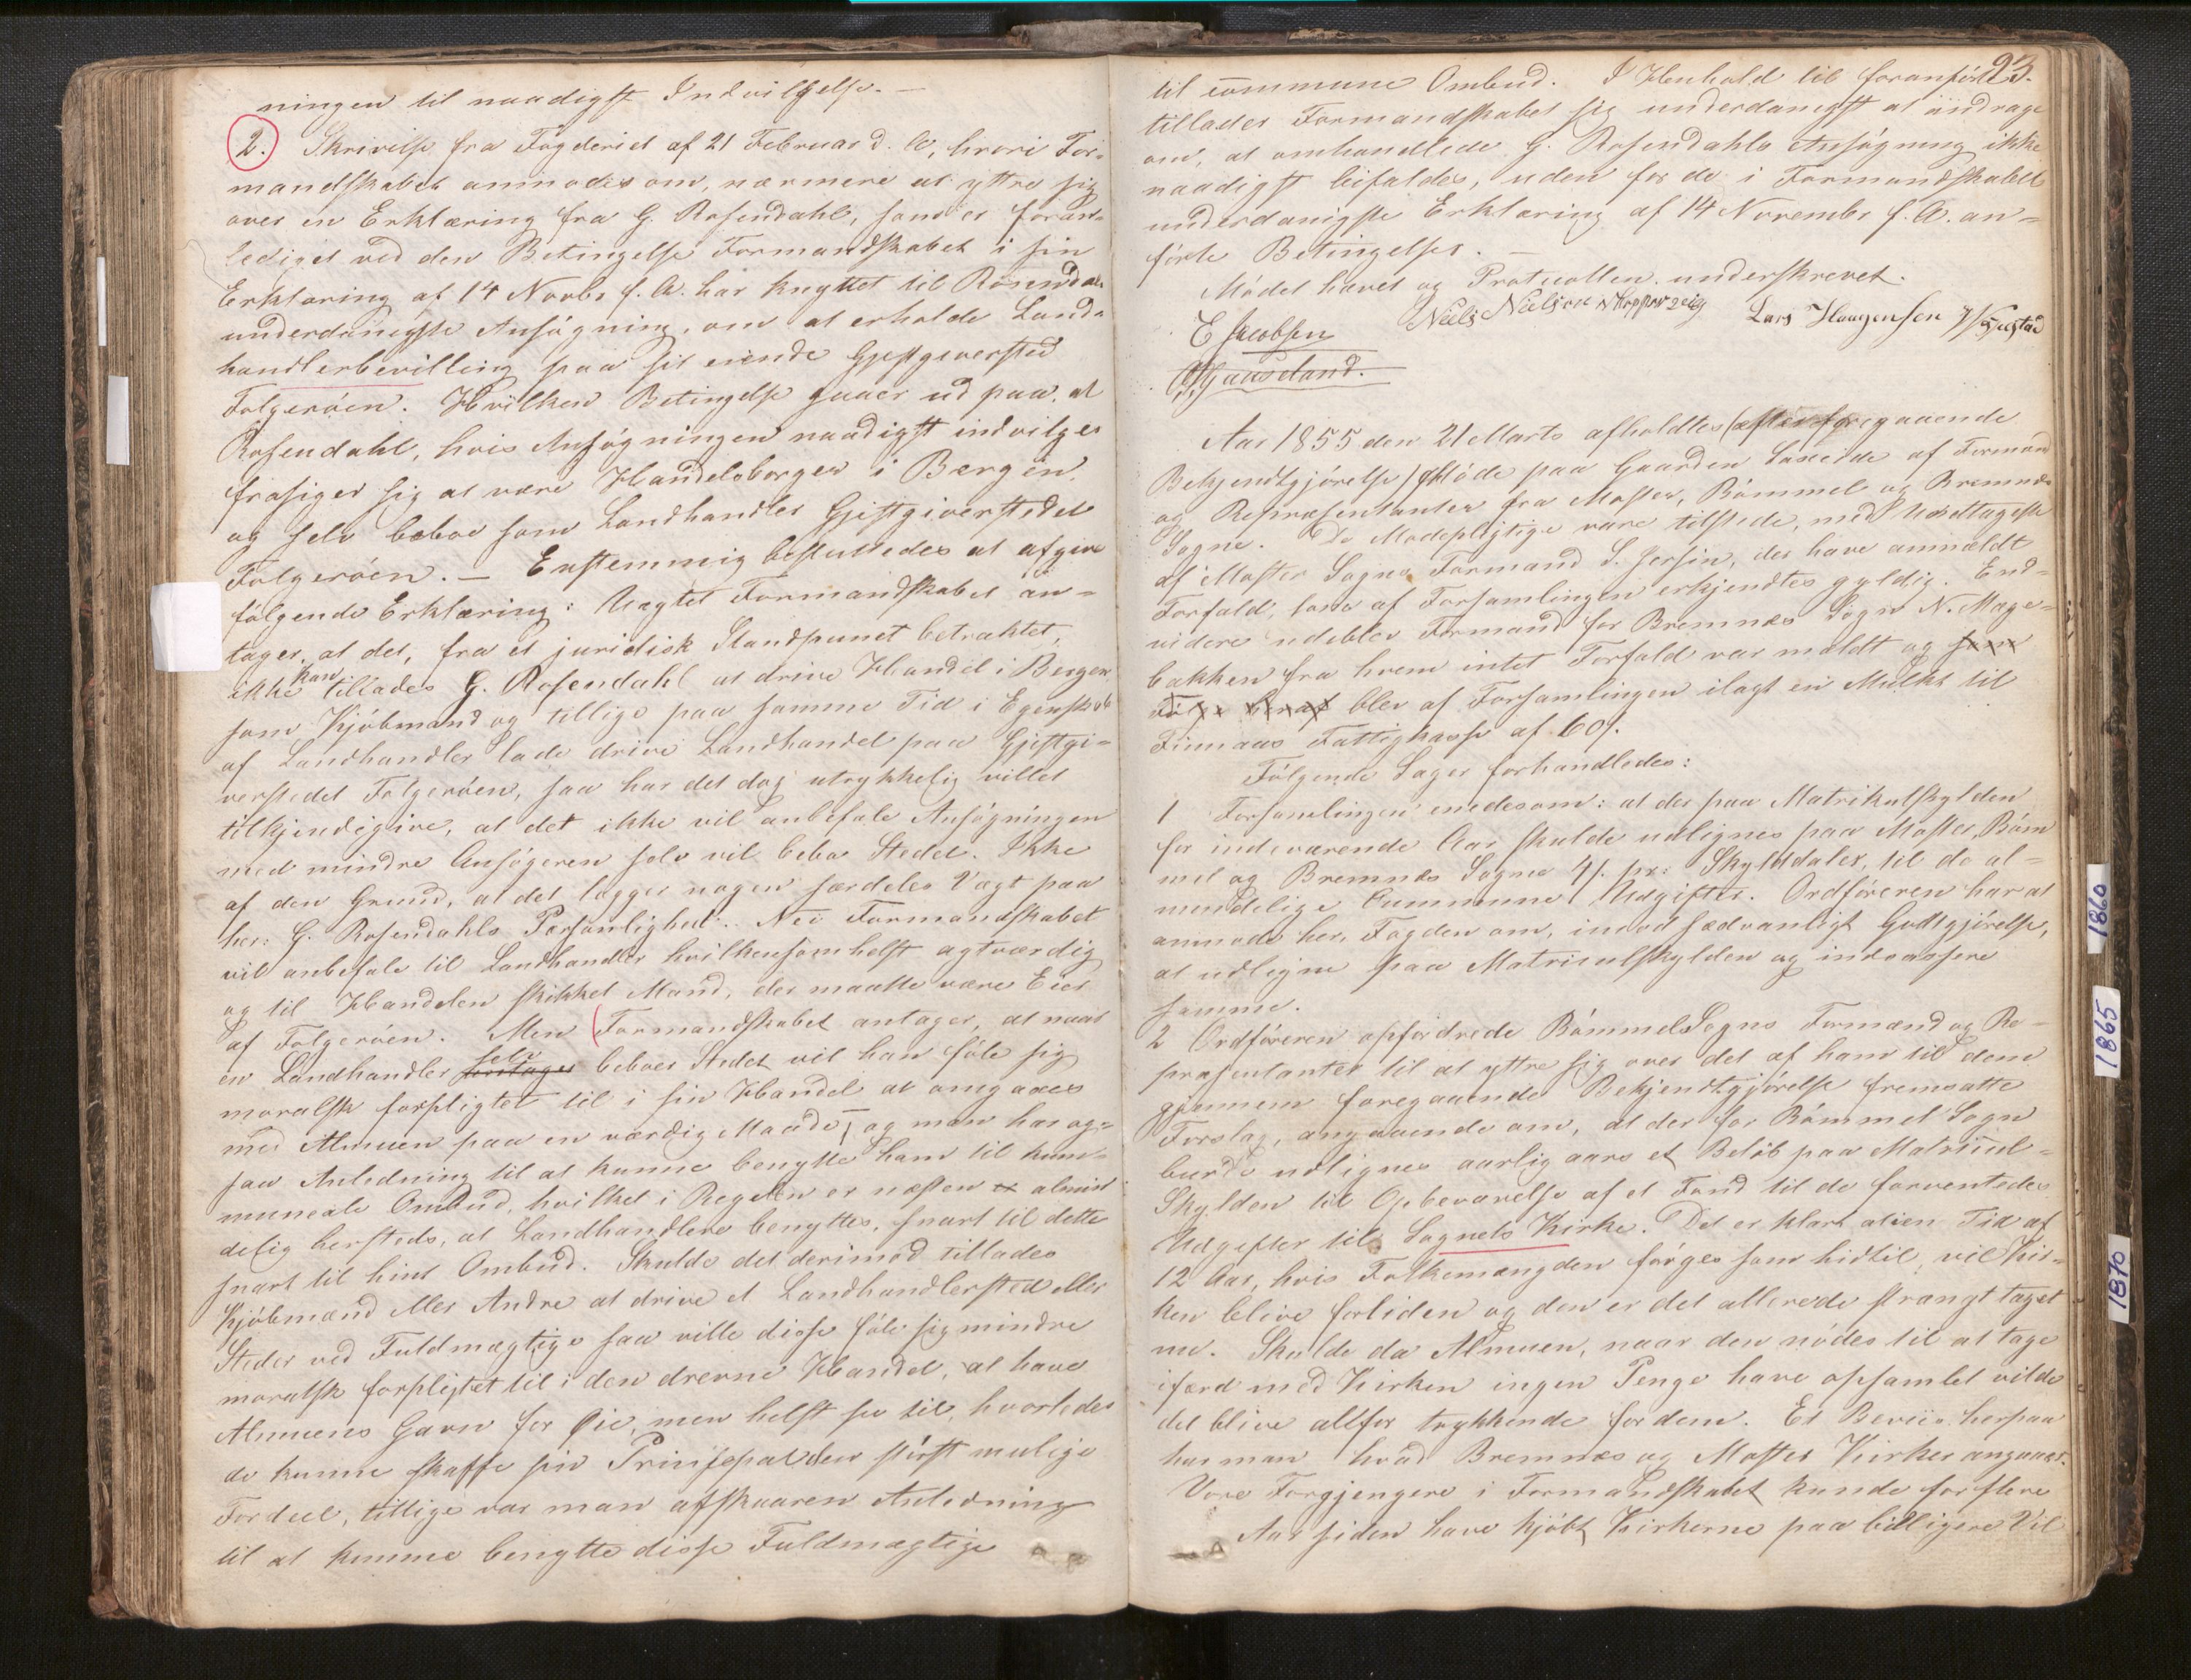 ningen til naadigst Indvilgelse. —
2. Skrivelse fra Fogderiet af 21 Februar d. A, hvori For-
mandskabet anmodes om, nærmere at yttre sig
over en Erklæring fra G. Rosendahl, som er foran-
lediget ved den Betingelse Formandskabet i sin
Erklæring af 14 Novbr f. A. har knyttet til Rosendals
underdanigste Ansögning, om at erholde Land-
handlerbevilling paa sit eiende Gjestgiversted
Folgeröen. Hvilken Betingelse gaaer ud paa, at
Rosendahl, hvis Ansögningen naadigst indvilges
frasiger sig at være Handelsborger i Bergen,
og selv beboe som Landhandler Gjestgiverstedet
Folgeröen. — Enstemmig besluttedes at afgive
følgende Erklæring: Uagtet Formandskabet an-
tager, at det, fra et juridisk Standpunct betraktet,
ikke kan tillades G. Rosendahl at drive Handel i Bergen
som Kjöbmand og tillige paa samme Tid i Egenskab
af Landhandler lade drive Landhandel paa Gjestgi-
verstedet Folgeröen, saa har det dog utrykkelig villet
tilkjendegive, at det ikke vil anbefale Ansögningen
med mindre Ansögeren selv vil bebo Stedet. Ikke
af den Grund, at det lægger nogen særdeles Vægt paa
her: G. Rosendahls Personlighed. Nei Formandskabet
vil anbefale til Landhandler hvilkensomhelst agtværdig
og til Handelen skikket Mand, der maatte være Eier
af Folgeröen. Men Formandskabet antager, at naar
en Landhandler selv beboer Stedet vil han föle sig
moralsk forpligtet til i sin Handel at omgaaes
med Almuen paa en værdig Maade, og man har og-
saa Anledning til at kunne benytte ham til kom-
munale Ombud, hvilket i Regelen er næsten almin
delig hersteds, at Landhandlere benyttes, snart til dette
snart til hint Ombud. Skulde det derimod tillades
Kjöbmænd eller Andre at drive et Landhandlersted eller
Steder ved Fuldmægtige saa ville disse föle sig mindre
moralsk forpligtet til i den drevne Handel, at have
Almuens Gavn for Öie, men helst se til, hvorledes
de kunne skaffe sin Prinsipal den störst mulige
Fordeel, tillige var man afskaaren Anledning
til at kunne benytte disse Fuldmægtige
93.
til commune Ombud. I Henhold til foranförte
tillader Formandskabet sig underdanigst at andrage
om, at omhandlede G. Rosendahls Ansögning ikke
naadigst bifaldes, uden for de i Formandskabets
underdanigste Erklæring af 14 Novembr f. A. an-
förte Betingelser. —
Mödet hævet og Protocollen underskrevet.
E Jacobsen Niels Nielsen Lars Haagensen
Aar 1855 den 21 Marts afholdtes (efter foregaaende
Bekjendtgjörelse) Möde paa Gaarden af Formænd
og Repræsentanter fra Moster, Bömmel og Bremnæs
Sogne. De Modepligtige vare tilstede, med Undtagelse
af Moster Sogns Formand S. Jersin, der have anmældt
Forfald, som af Forsamlingen erkjendtes gyldig. End-
videre udeblev Formand for Bremnæs Sogn N. Mæge-
bakken fra hvem intet Forfald var mældt og
blev af Forsamlingen ilagt en Mulkt til
Finnaas Fattigkasse af 60 s.
Fölgende Sager forhandledes:
1 Forsamlingen enedes om: at der paa Matrikulskylden
for indeværende Aar skulde udlignes paa Moster, Böm
mel og Bremnæs Sogne 4 s. pr: Skylddaler, til de al-
mindelige Commune Udgifter. Ordföreren har at
anmode her, Fogden om, imod sædvanligt Godtgjörelse,
at udligne paa Matriculskylden og indcassere
samme.
2 Ordföreren opfordrede Bömmel Sogns Formænd og Re-
præsentanter til at yttre sig over det af ham til dem
gjennem foregaaende Bekjendtgjörelse fremsatte
Forslag, angaaende om, at der for Bömmel Sogn
burde udlignes aarlig aars et Belöb paa Matricul-
Skylden til Opbevarelse af et Fond til de forventedes
Udgifter til Sognets Kirke. Det er klart at i en Tid af
12 Aar, hvis Folkemængden forøges som hidtil, vil Kir-
ken blive forliden og den er det allerede strængt taget
nu. Skulde da Almuen, naar den nödes til at tage
ifærd med Kirken ingen Penge have opsamlet vilde
det blive altfor trykkende for dem. Et Beviis herpaa
har man hvad Bremnæs og Moster Kirker angaaer.
Vore Forgjengere i Formandskabet kunde for flere
Aar siden have kjöbt Kirkerne paa billigere Vil
1860
1865
1870